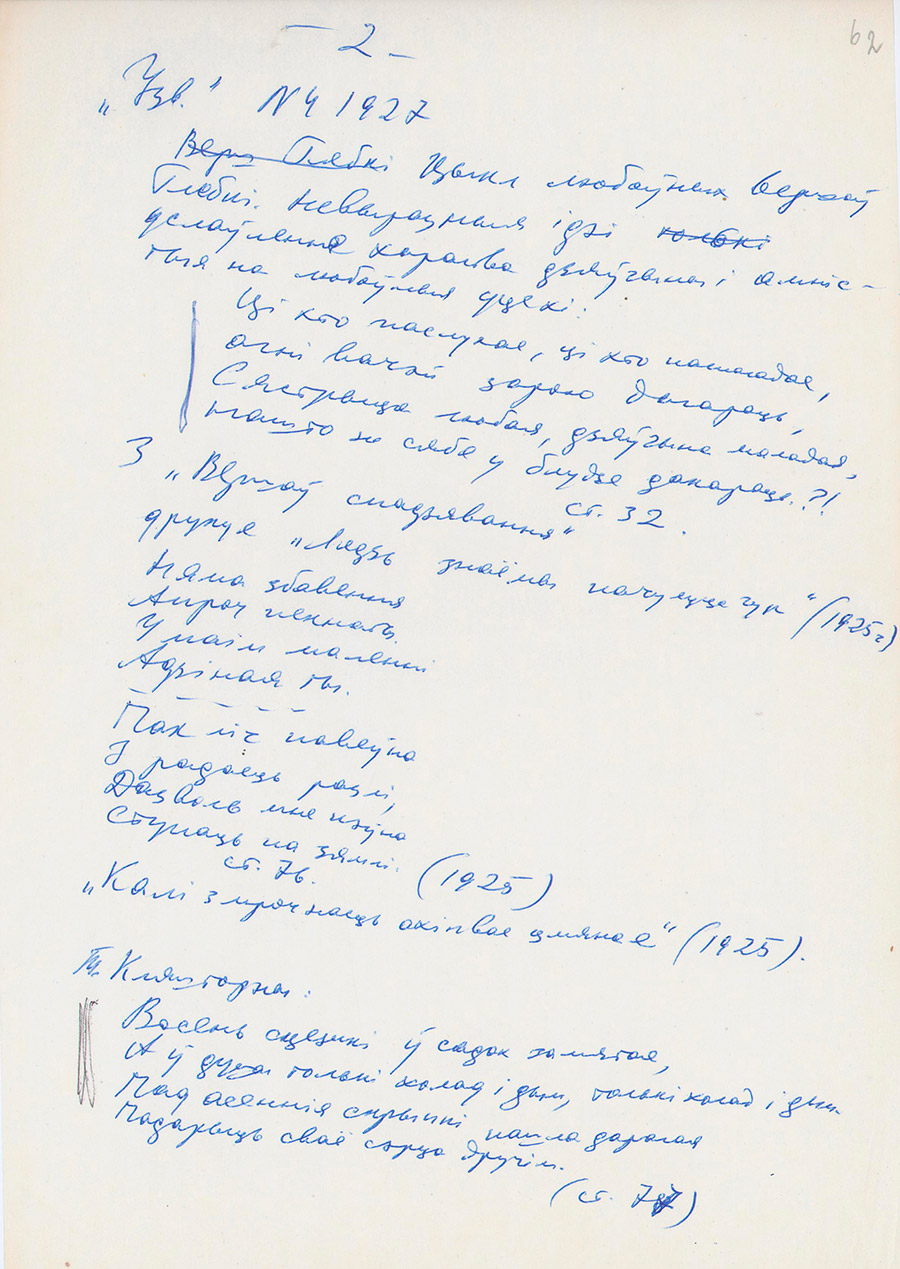 - 2 -
62
„Узв." N 4 1927
Верш Глебкі Цыкл любоўных вершаў
Глебкі. Невыразныя ідэі толькі
услаўленне хараства дзяўчыны і
тыя на любоўныя уцехі:
Ці хто паслухае, ці хто пашкадае,
агні вачэй зарою дагараць,
Сястрыца любая, дзяўчына маладая,
нашто ж сябе у блудзе дакараць?!
ст. 32.
З „Вершаў спадзявання"
друкуе „Ледзь знаёмы пачуецца гук" (1925 г)
Няма збавення
Апроч пекнаты
У маім маленні
Адзіная ты.
Пакліч павеўна
І радасць разлі,
Дазволь мне пэўна
Ступаць па зямлі.
ст. 76. (1925)
„Калі змрочнасць ахіпвае цьмяная" (1925).
Т. Кляшторны:
Восень сцежкі ў садок замятае,
А ў душы толькі холад і дым, толькі холад і дым
Пад асеннія скрыпкі пашла дарагая
Падарыць сваё сэрца другім.
(ст. 77)